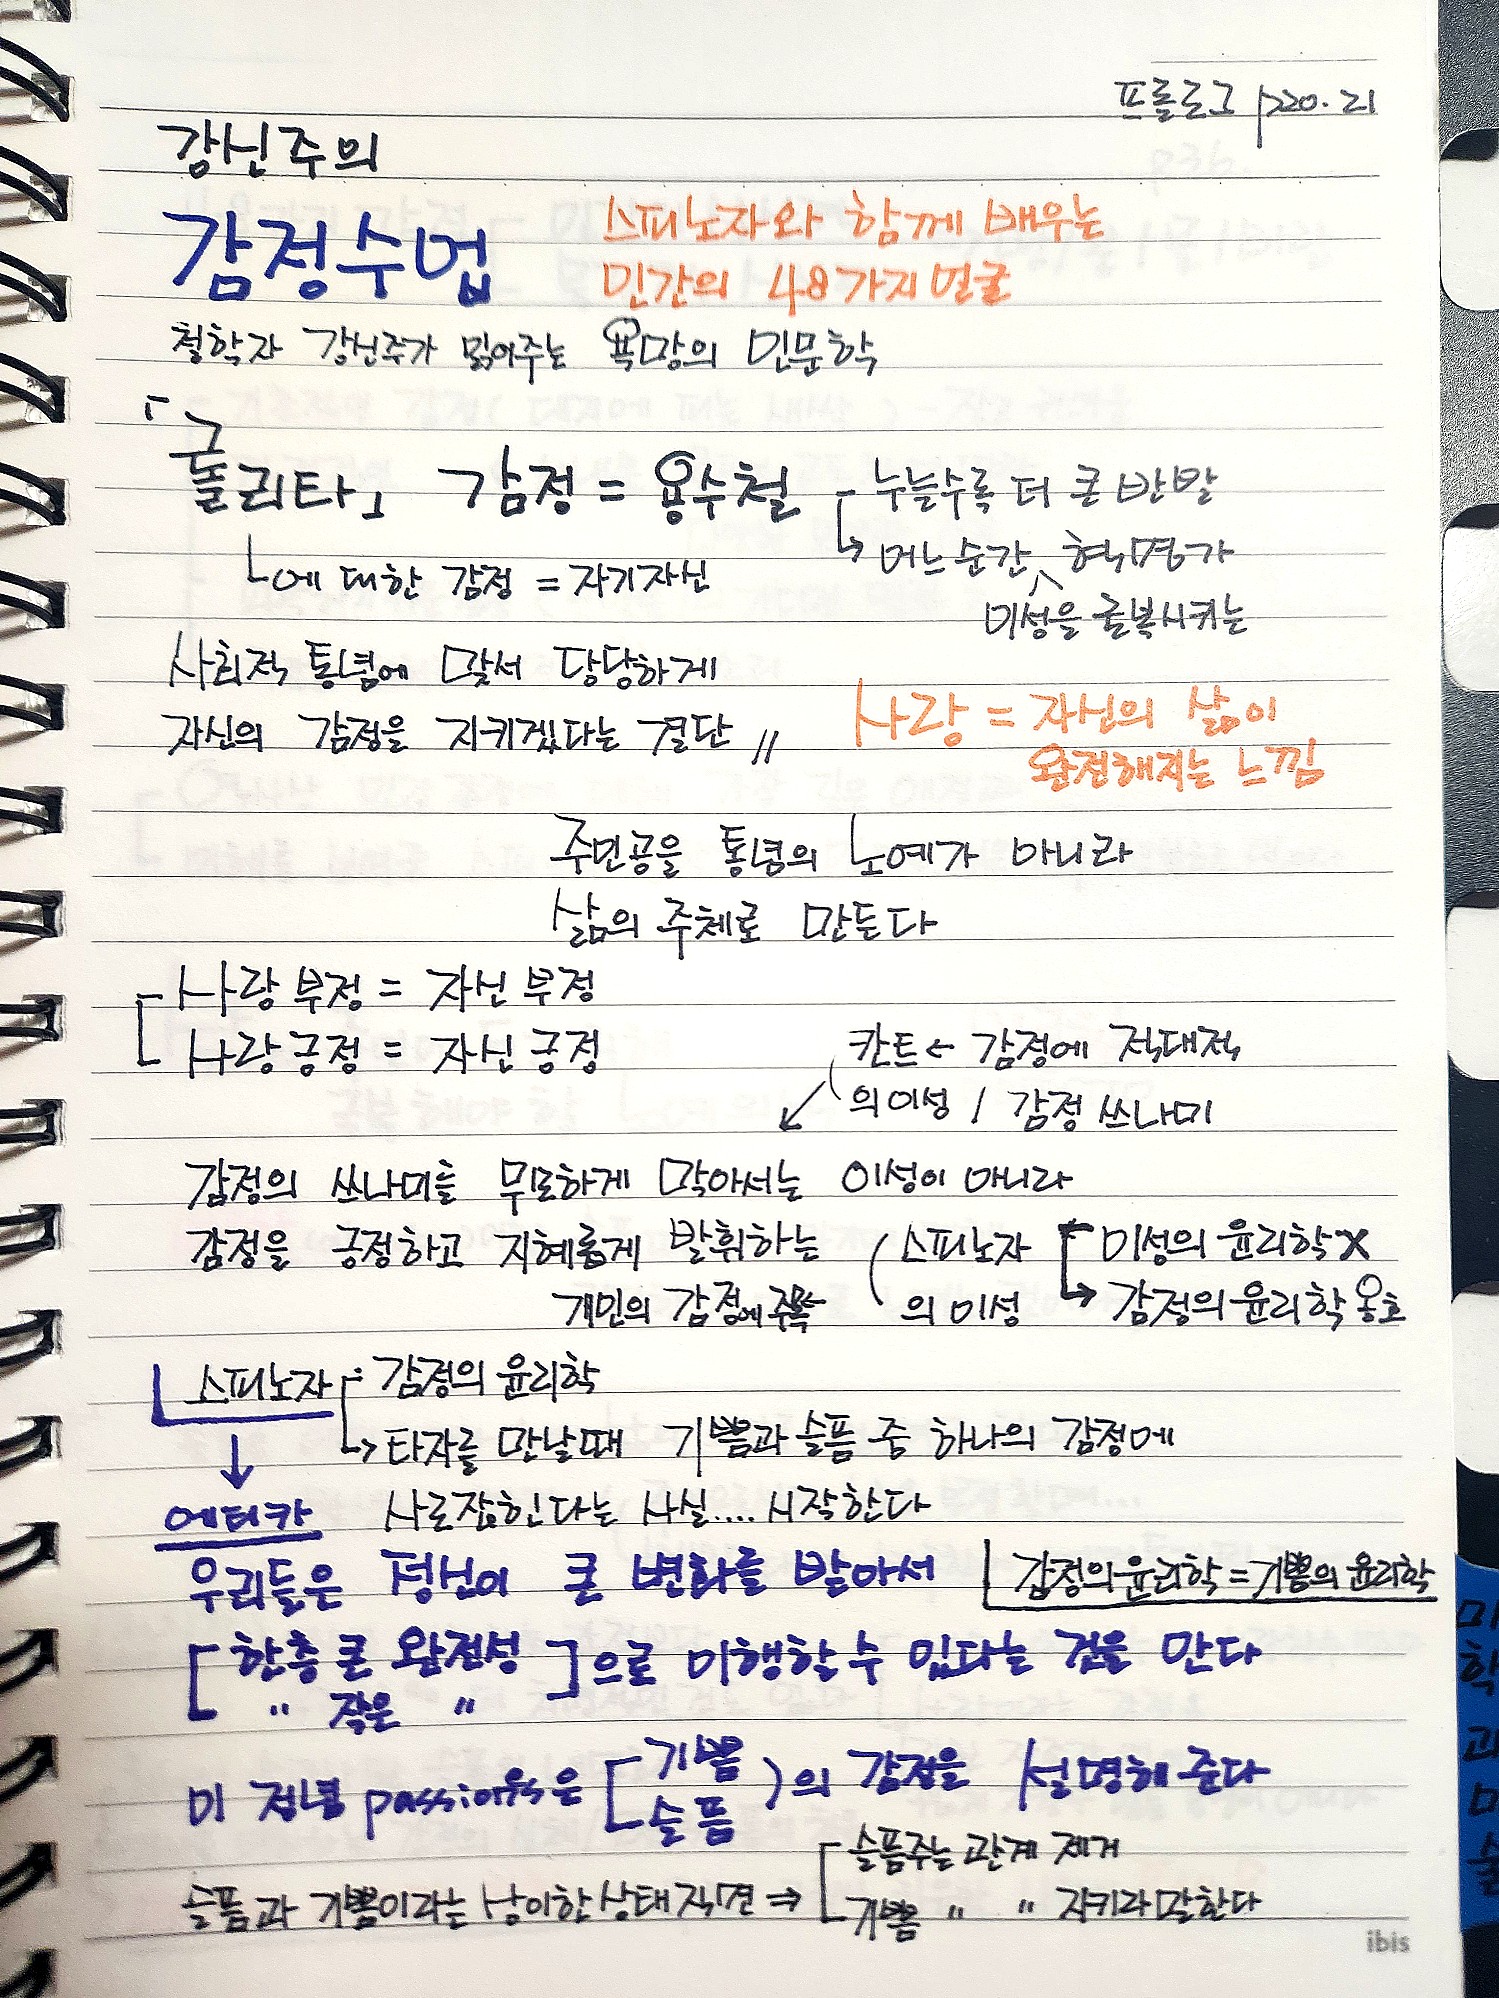 프롤로그 p20.21
강신주의
감정수업
스피노자와 함께 배우는
인간의 48가지 얼굴
철학자 강신주가 읽어주는 욕망의 인문학
「굴
롤리타」 감정 = 용수철 누늘수록 더 큰 반발
어느 순간 혁명가
이성을 굴복시키는
에 대한 감정 = 자기자신
사회적 통념에 맞서 당당하게
자신의 감정을 지키겠다는 결단 //
사랑 = 자신의 삶이
완전해지는 느낌
주인공을 통념의 노예가 아니라
삶의 주체로 만든다
사랑 부정 = 자신 부정
사랑 긍정 = 자신 긍정
칸트 ← 감정에 적대적
의 이성 / 감정 쓰나미
감정의 쓰나미를 무모하게 막아서는 이성이 아니라
감정을 긍정하고 지혜롭게 발휘하는 (스피노자 이성의 윤리학 X
개인의 감정에 주목 의 이성 → 감정의 윤리학 옹호
스피노자 감정의 윤리학
→ 타자를 만날때 기쁨과 슬픔 중 하나의 감정에
사로잡힌다는 사실.... 시작한다
↓
에티카
우리들은 정신이 큰 변화를 받아서
감정의 윤리학 = 기쁨의 윤리학
[한층 큰 완전성 ]으로 이행할 수 있다는 것을 안다
" 작은 "
이 정념 passions은 [기쁨 )의 감정을 설명해 준다
슬픔
슬픔과 기쁨이라는 상이한 상태 직면 ⇒ 슬픔주는 관계 제거
기쁨 " " 지키라 말한다
ibis
미
학
과
미
술